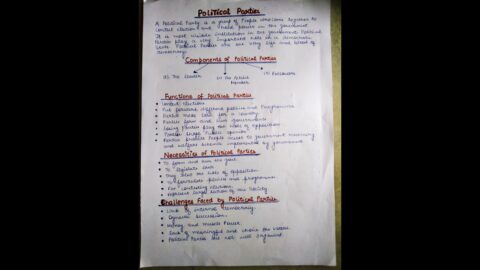 Political Parties
A Political Party is a group of People who come together to
contest elections and hold power in the government.
It is most visible institution in the government. Political
Parties play a very important role in a democratic
state. Political Parties are the very life and blood of
democracy.
Components of Political Parties
(1) The Leader (2) The Active Member (3) Followers
Functions of Political Parties
Contest Elections
Put forward different policies and Programmes
Parties make laws for a country
Parties form and run governments
Losing Parties play the role of opposition
Parties shape Public opinion
Parties provide People access to government machinery
and welfare schemes implemented by government
Necessities of Political Parties
To form and run the govt.
To legislate laws
They play the role of opposition
To formulate policies and programmes
For contesting elections
Represent large section of our Society
Challenges Faced by Political Parties
Lack of internal democracy.
Dynastic Succession.
Money and Muscle Power.
Lack of meaningful choice
Political Parties are not well organised.